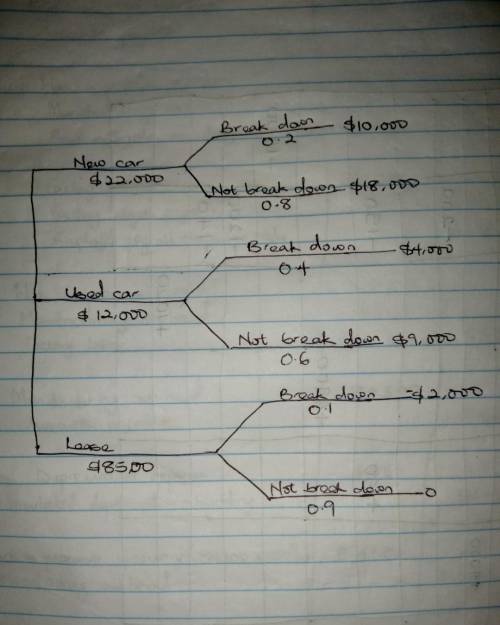 Break down $10,000
0.2
New car
$22,000
Not break down $18,000
0.8
Break down $4,000
0.4
Used car
$12,000
Not break down $9,000
0.6
Break down =$2,000
0.1
Lease
$8500
Not break down 0
0.9